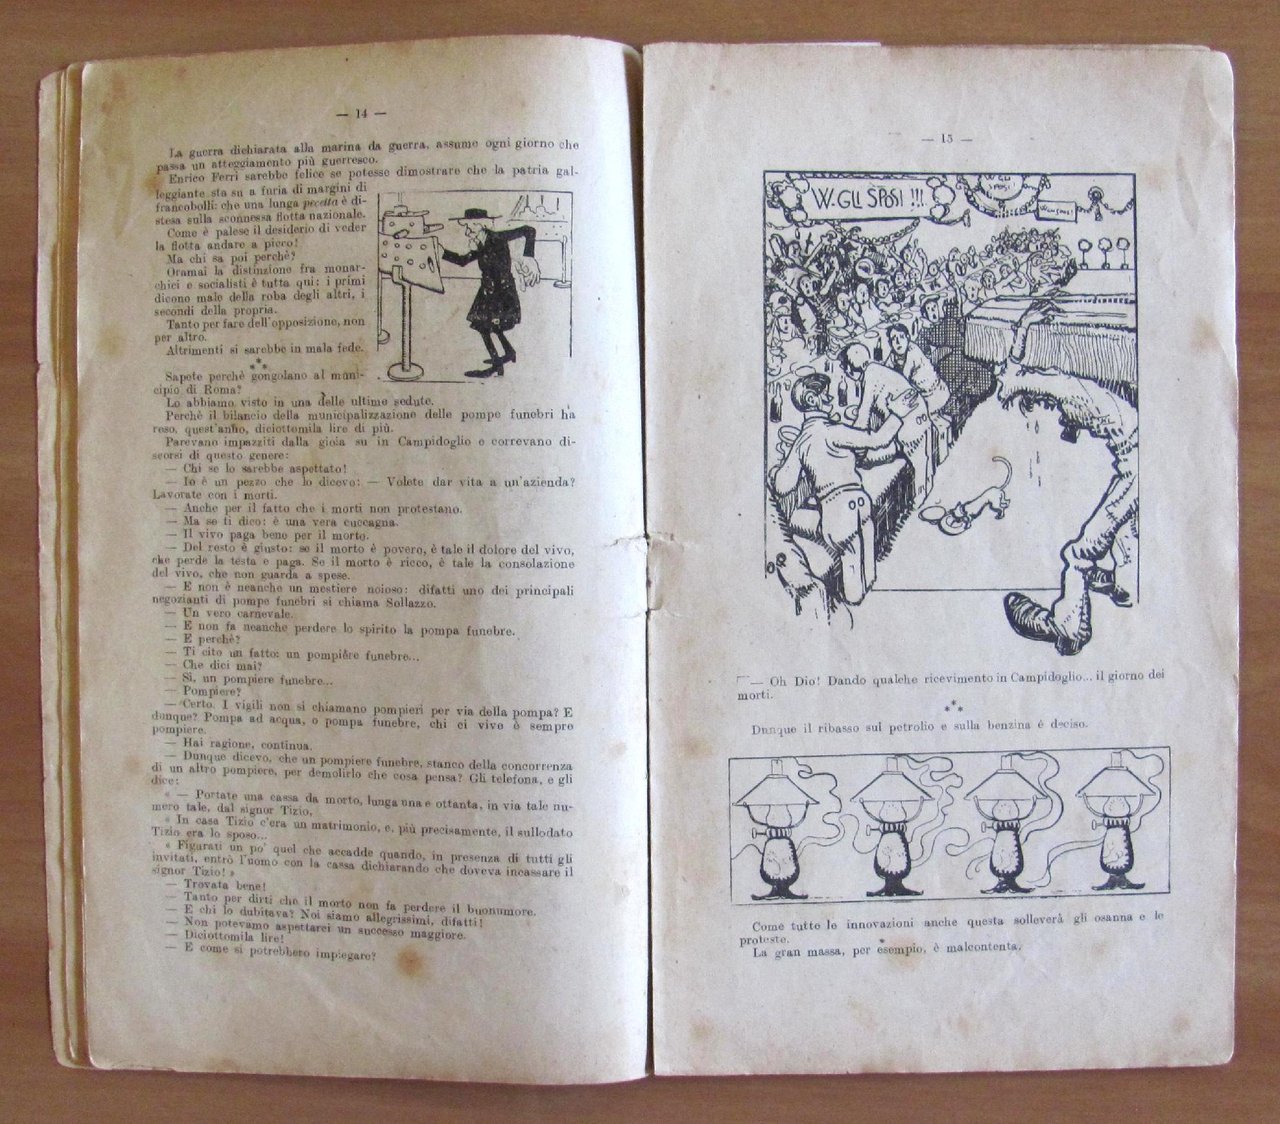 — 14 —
La guerra dichiarata alla marina da guerra, assume ogni giorno che
passa un atteggiamento più guerresco.
Enrico Ferri sarebbe felice se potesse dimostrare che la patria gal-
leggiante sta su a furia di margini di
francobolli: che una lunga pecetta è di-
stesa sulla sconnessa flotta nazionale.
Come è palese il desiderio di veder
la flotta andare a picco!
Ma chi sa poi perchè?
Oramai la distinzione fra monar-
chici e socialisti è tutta qui: i primi
dicono male della roba degli altri, i
secondi della propria.
Tanto per fare dell'opposizione, non
per altro.
Altrimenti si sarebbe in mala fede.
***
Sapete perchè gongolano al muni-
cipio di Roma?
Lo abbiamo visto in una delle ultime sedute.
Perchè il bilancio della municipalizzazione delle pompe funebri ha
reso, quest'anno, diciottomila lire di più.
Parevano impazziti dalla gioia su in Campidoglio e correvano di-
scorsi di questo genere:
— Chi se lo sarebbe aspettato!
— Io è un pezzo che lo dicevo: — Volete dar vita a un'azienda?
Lavorate con i morti.
— Anche per il fatto che i morti non protestano.
— Ma se ti dico: è una vera cuccagna.
— Il vivo paga bene per il morto.
— Del resto è giusto: se il morto è povero, è tale il dolore del vivo,
che perde la testa e paga. Se il morto è ricco, è tale la consolazione
del vivo, che non guarda a spese.
— E non è neanche un mestiere noioso: difatti uno dei principali
negozianti di pompe funebri si chiama Sollazzo.
— Un vero carnevale.
— E non fa neanche perdere lo spirito la pompa funebre.
— E perchè?
— Ti cito un fatto: un pompiere funebre...
— Che dici mai?
— Si, un pompiere funebre...
— Pompiere?
— Certo. I vigili non si chiamano pompieri per via della pompa? E
dunque? Pompa ad acqua, o pompa funebre, chi ci vive è sempre
pompiere.
— Hai ragione, continua.
— Dunque dicevo, che un pompiere funebre, stanco della concorrenza
di un altro pompiere, per demolirlo che cosa pensa? Gli telefona, e gli
dice:
« — Portate una cassa da morto, lunga una e ottanta, in via tale nu-
mero tale, dal signor Tizio.
« In casa Tizio c'era un matrimonio, e, più precisamente, il sullodato
Tizio era lo sposo...
« Figurati un po' quel che accadde quando, in presenza di tutti gli
invitati, entrò l'uomo con la cassa dichiarando che doveva incassare il
signor Tizio! »
— Trovata bene!
— Tanto per dirti che il morto non fa perdere il buonumore.
— E chi lo dubitava? Noi siamo allegrissimi, difatti!
— Non potevamo aspettarci un successo maggiore.
— Diciottomila lire!
— E come si potrebbero impiegare?
— 15 —
W. GLI SPOSI !!!
W GLI
SPOSI
— Oh Dio! Dando qualche ricevimento in Campidoglio... il giorno dei
morti.
***
Dunque il ribasso sul petrolio e sulla benzina è deciso.
Come tutte le innovazioni anche questa solleverà gli osanna e le
proteste.
La gran massa, per esempio, è malcontenta.